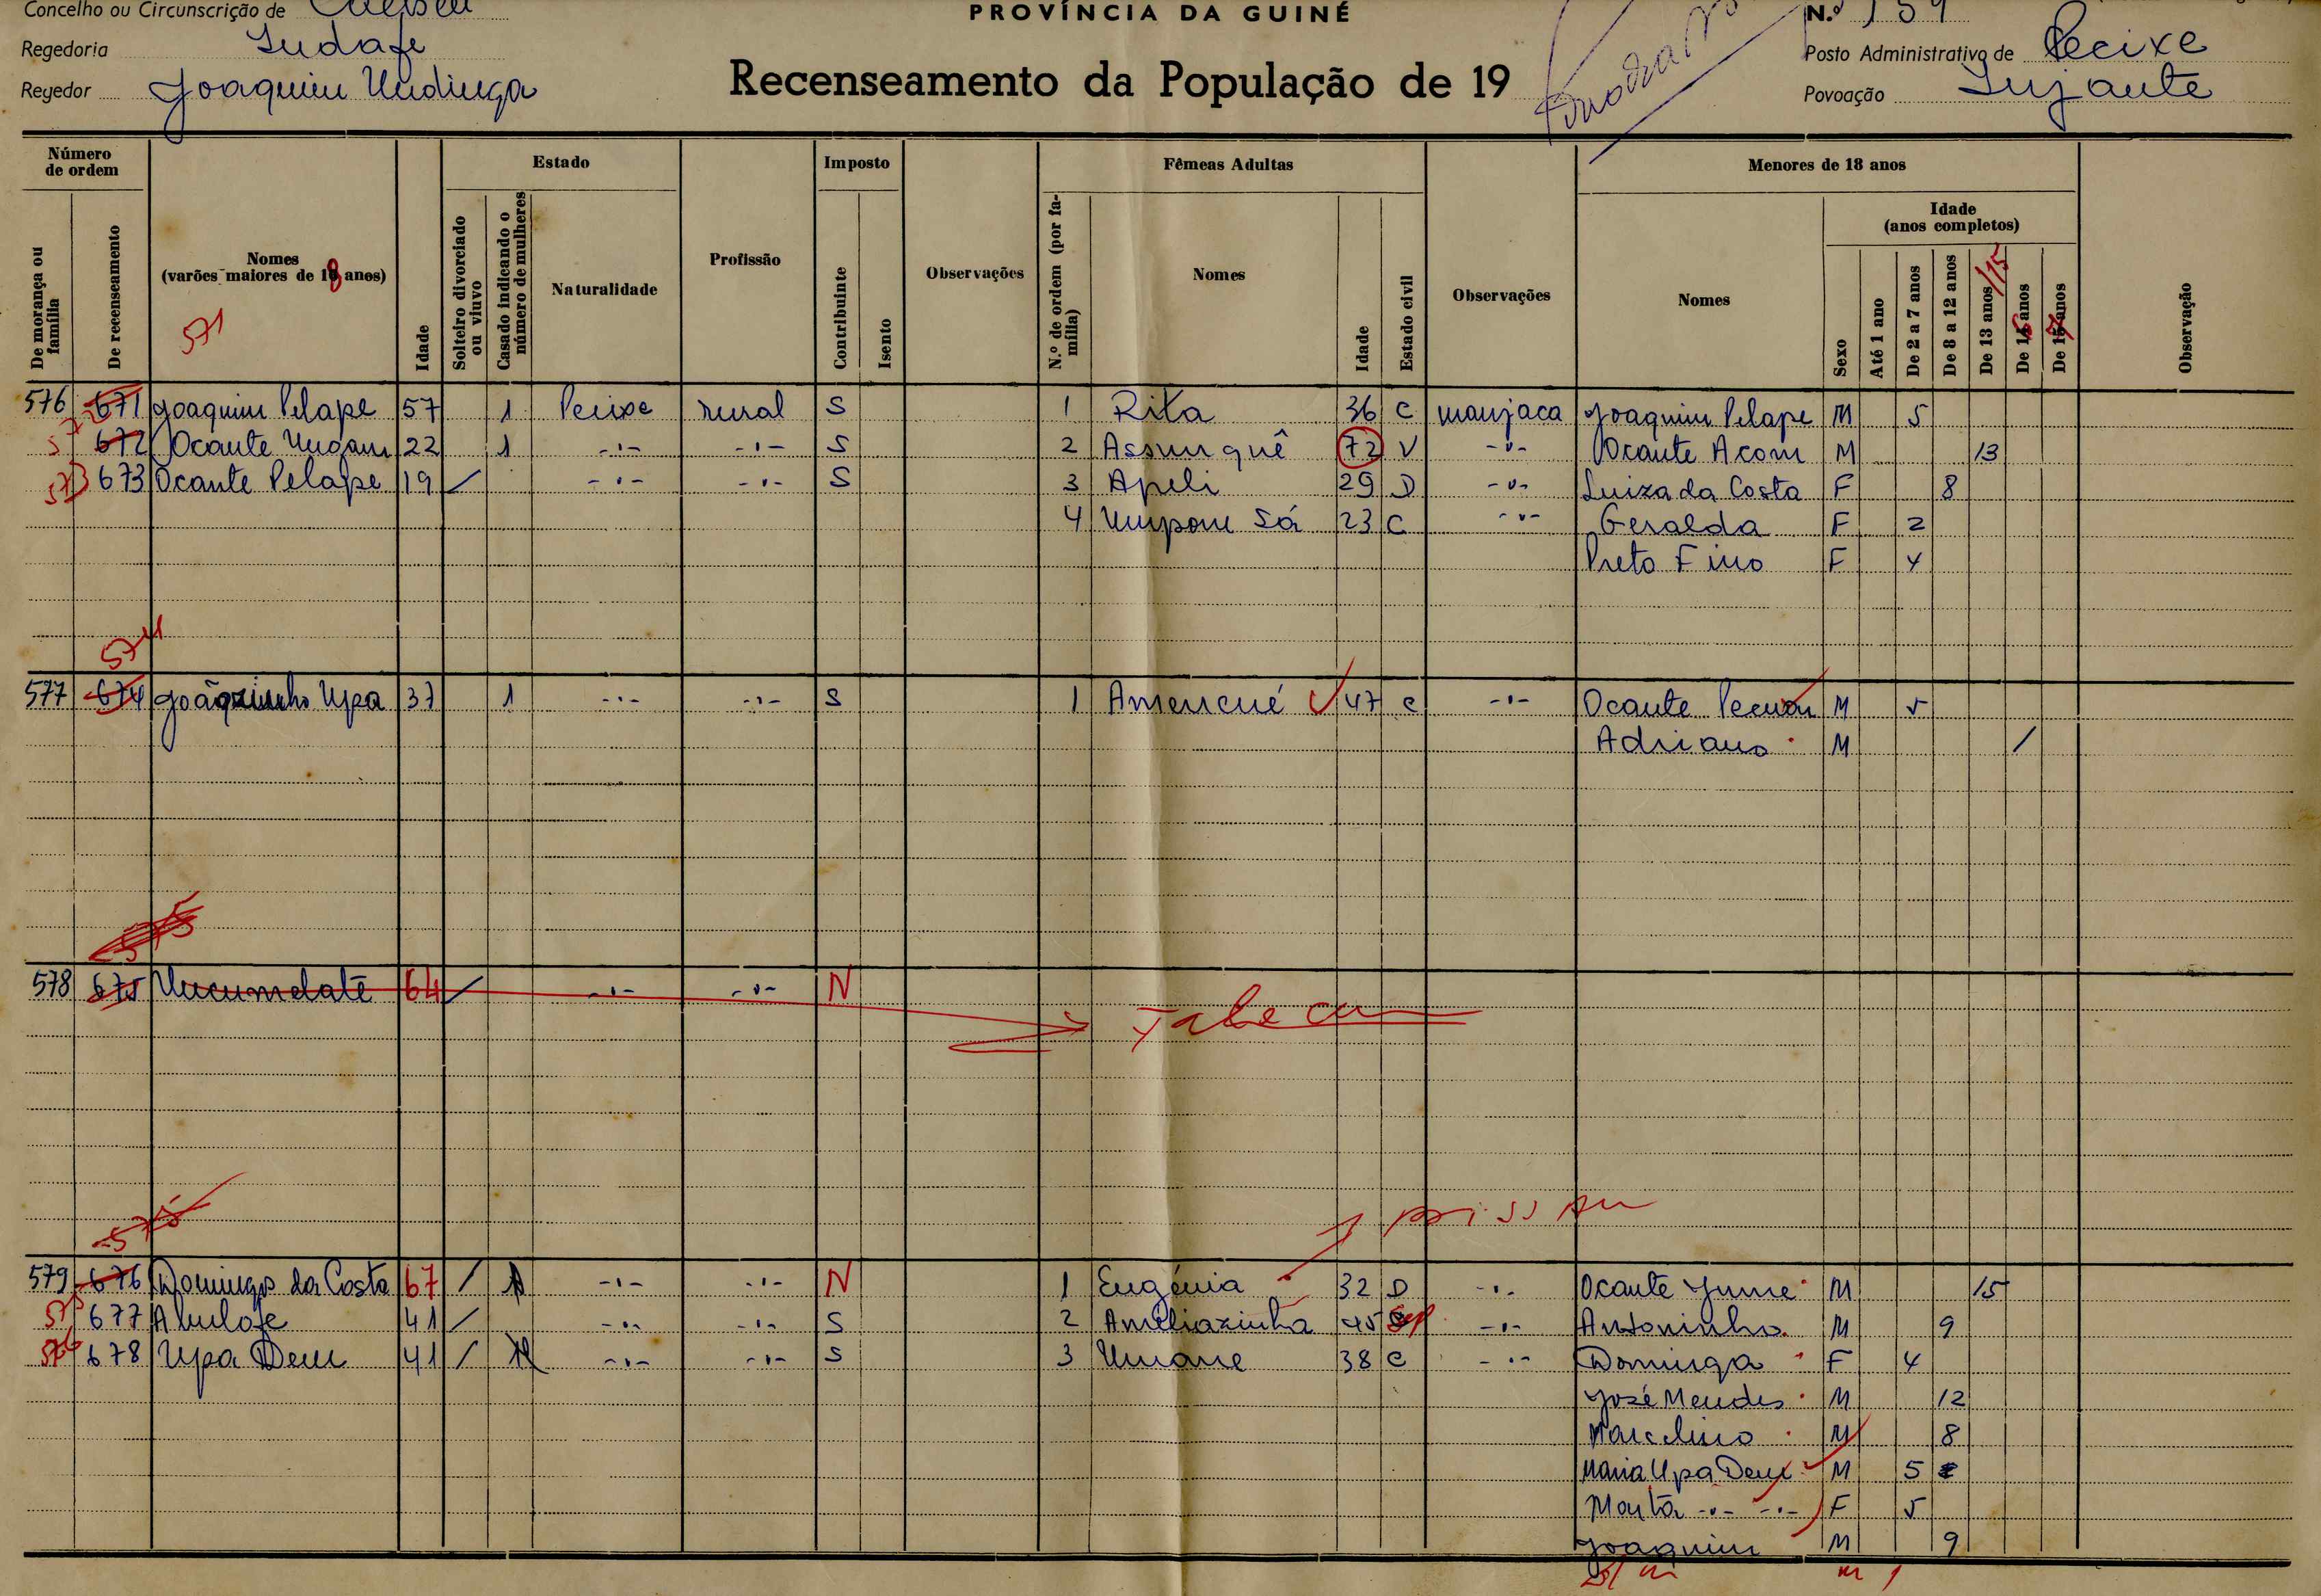 Concelho ou Circunscrição de
PROVÍNCIA DA GUINÉ
N.º 159
Regedoria Indafe
Posto Administrativo de Pecixe
Regedor Joaquim Undinga
Recenseamento da População de 19
Povoação Injante
Número de ordem
Estado
Imposto
Fêmeas Adultas
Menores de 18 anos
De morança ou família
De recenseamento
Nomes (varões maiores de 18 anos)
Idade
Solteiro divorciado ou viuvo
Casado indicando o número de mulheres
Naturalidade
Profissão
Contribuinte
Isento
Observações
N.º de ordem (por família)
Nomes
Idade
Estado civil
Observações
Nomes
Sexo
Idade (anos completos)
Até 1 ano
De 2 a 7 anos
De 8 a 12 anos
De 13 anos /15
De 14 anos
De 15 anos
Observação
571
576 671 Joaquim Pelape 57 1 Pecixe rural S 1 Rita 36 C manjaca Joaquim Pelape M 5
572 672 Ocante Ungam 22 1 -"- -"- S 2 Assunquê 72 V -"- Ocante Acom M 13
573 673 Ocante Pelape 19 / -"- -"- S 3 Apeli 29 D -"- Luiza da Costa F 8
4 Umpom Sá 23 C -"- Geralda F 2
Preto Fino F 4
574
577 674 Joãozinho Upa 37 1 -"- -"- S 1 Amencué 47 C -"- Ocante M 5
Adriano M /
575
578 675 Ucumelate 64 / -"- -"- N
575
579 676 Domingos da Costa 67 / -"- -"- N 1 Eugénia 32 D -"- Ocante Jume M 15
677 Abulofe 41 / -"- -"- S 2 Ameliazinha 45 -"- Antoninho M 9
576 678 Upa Dem 41 / -"- -"- S 3 Umane 38 C -"- Dominga F 4
José Mendes M 12
Marcelino M 8
Maria Upa Dem M 5
Marta -"- -"- F 5
Joaquim M 9